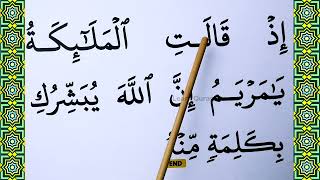 إِذۡ قَالَتِ ٱلۡمَلَٰٓئِكَةُ
يَٰمَرۡيَمُ إِنَّ ٱللَّهَ يُبَشِّرُكِ
بِكَلِمَةٖ مِّنۡهُ
END